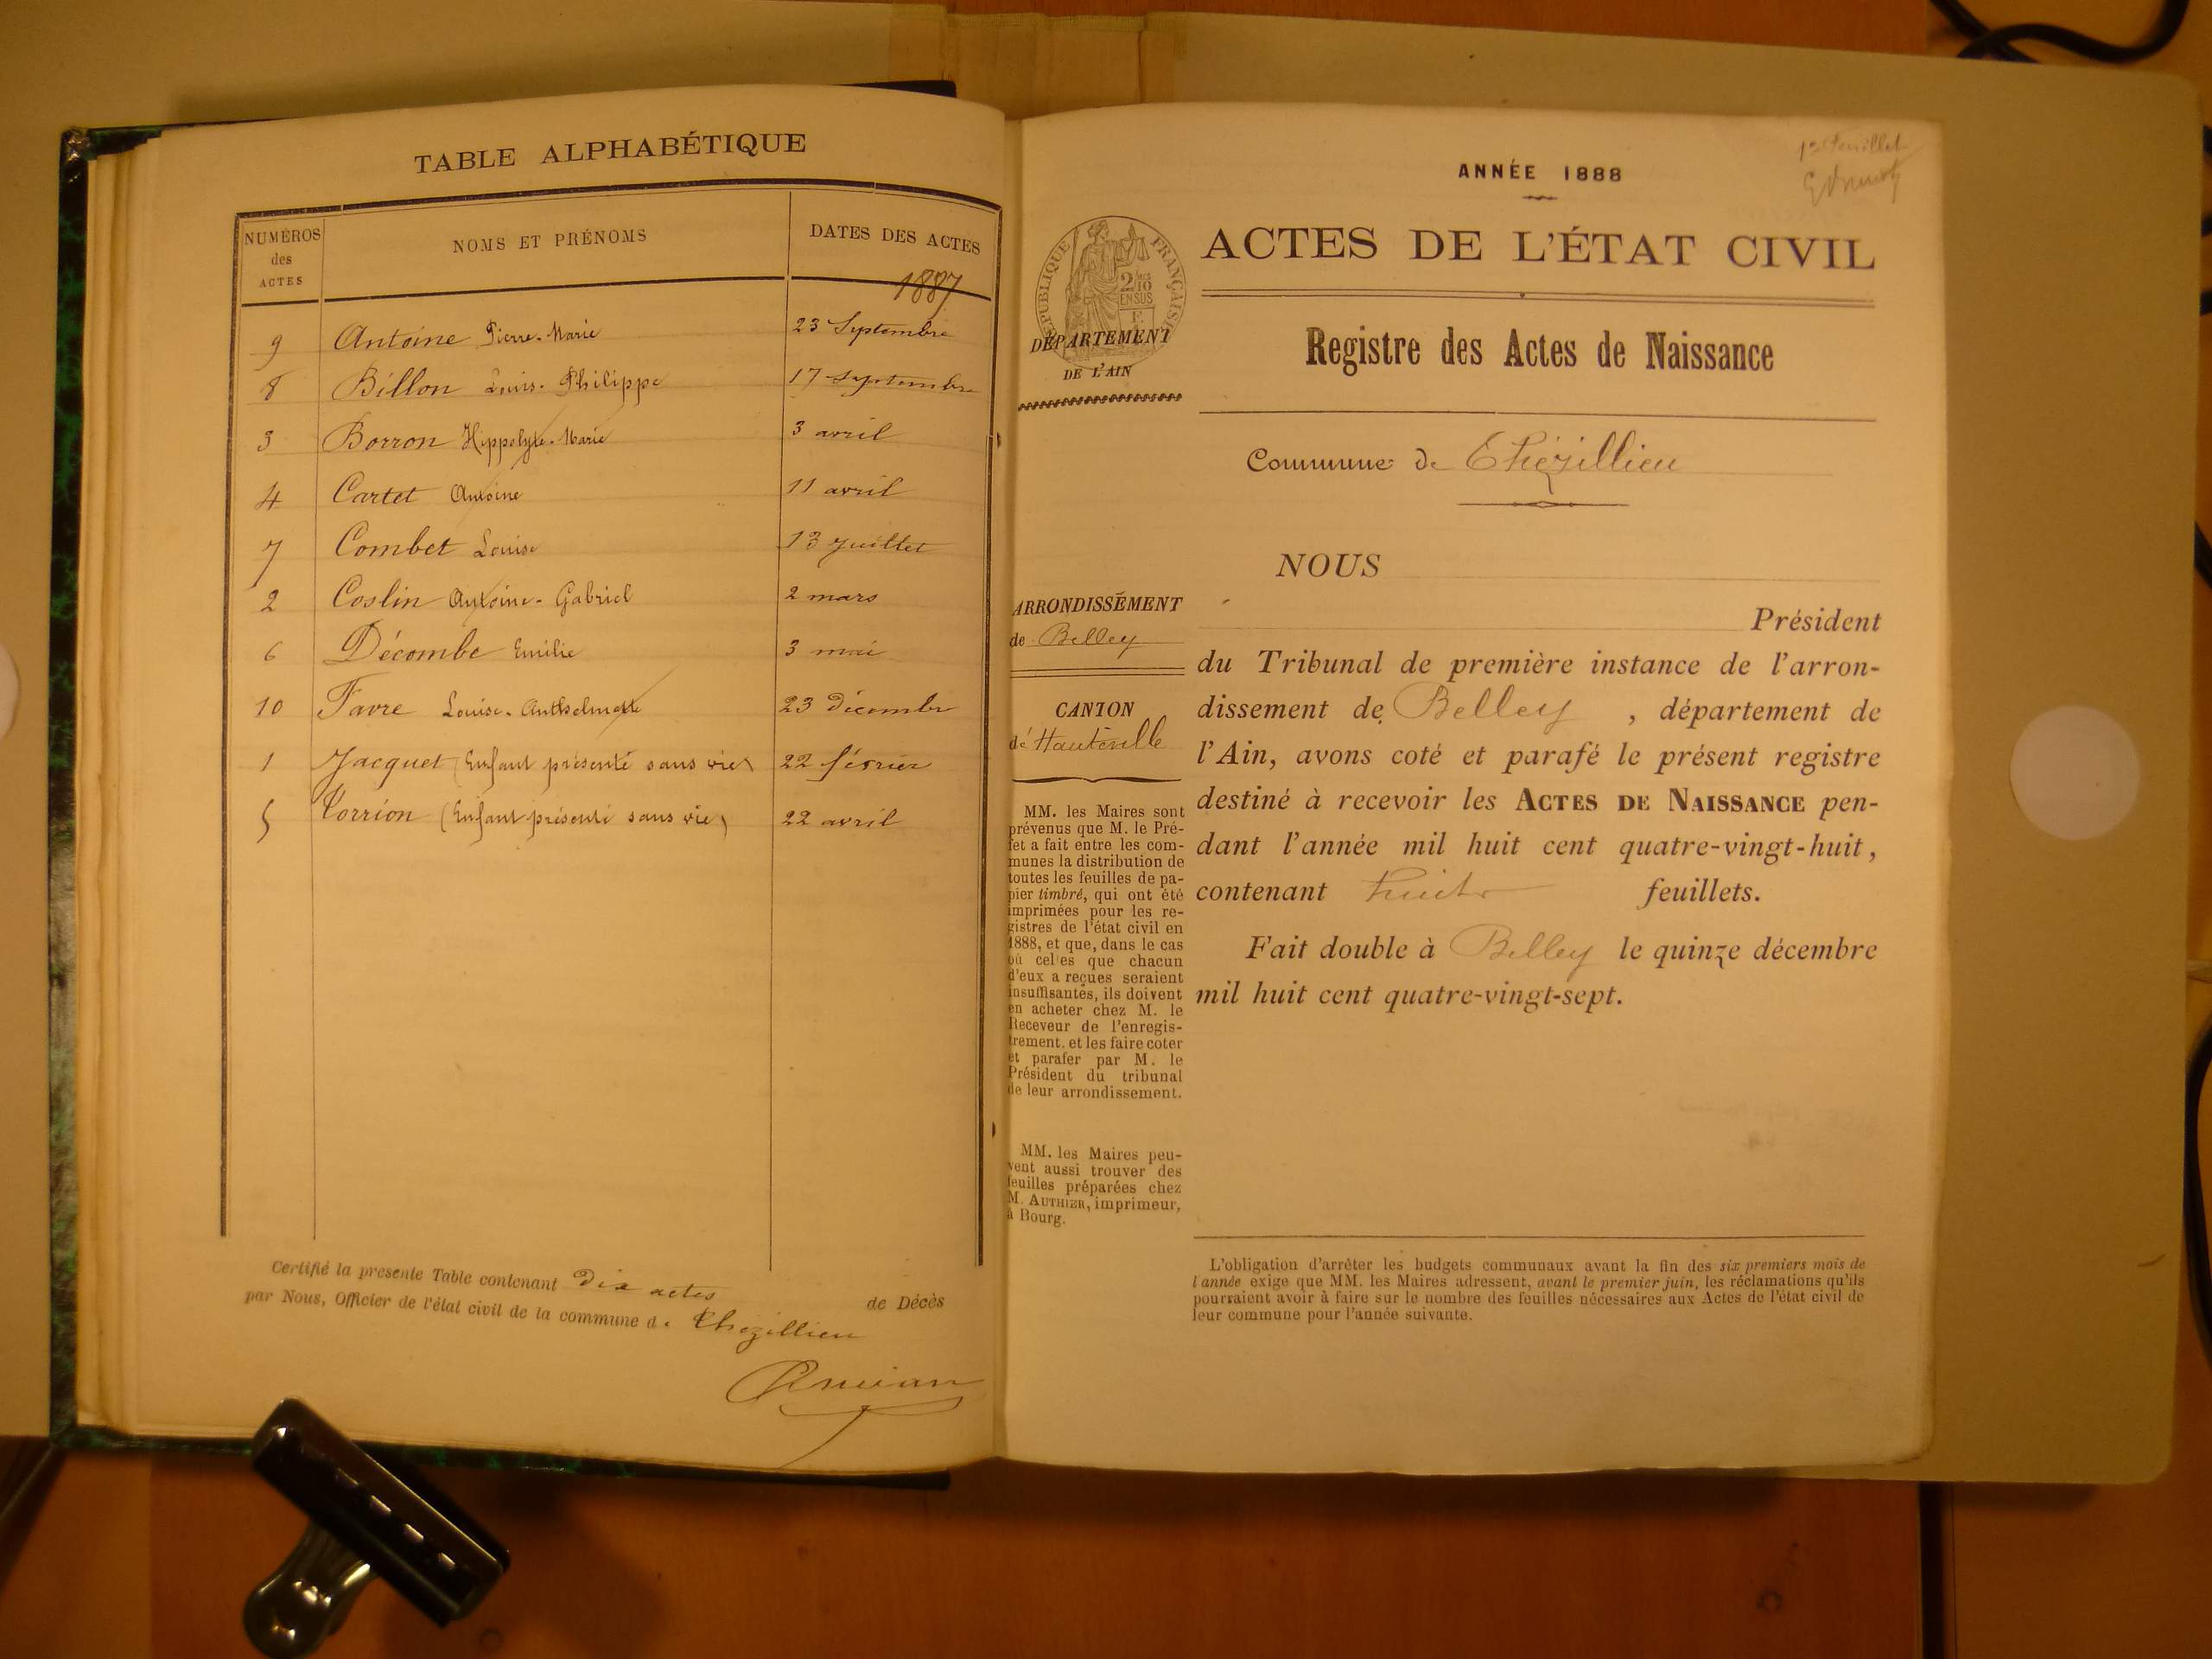 TABLE ALPHABÉTIQUE
NUMÉROS
des
ACTES
NOMS ET PRÉNOMS
DATES DES ACTES
1887
9 Antoine Pierre-Marie 23 Septembre
8 Billon Louis-Philippe 17 septembre
3 Borron Hippolyte-Marie 3 avril
4 Cartet Antoine 11 avril
7 Combet Louise 13 juillet
2 Coslin Antoine-Gabriel 2 mars
6 Décombe Emilie 3 mai
10 Favre Louise-Anthelmette 23 décembre
1 Jacquet (Enfant présenté sans vie) 22 février
5 Torrion (Enfant présenté sans vie) 22 avril
Certifié la presente Table contenant Dix actes de Décès
par Nous, Officier de l'état civil de la commune d. Thézillieu
1er feuillet
ANNÉE 1888
ACTES DE L'ÉTAT CIVIL
RÉPUBLIQUE FRANÇAISE
2/10
EN SUS
DÉPARTEMENT
DE L'AIN
Registre des Actes de Naissance
Commune de Thézillieu
NOUS
Président
du Tribunal de première instance de l'arron-
dissement de Belley, département de
l'Ain, avons coté et parafé le présent registre
destiné à recevoir les ACTES DE NAISSANCE pen-
dant l'année mil huit cent quatre-vingt-huit,
contenant huit feuillets.
Fait double à Belley le quinze décembre
mil huit cent quatre-vingt-sept.
ARRONDISSEMENT
de Belley
CANTON
de Hauteville
MM. les Maires sont
prévenus que M. le Pré-
fet a fait entre les com-
munes la distribution de
toutes les feuilles de pa-
pier timbré, qui ont été
imprimées pour les re-
gistres de l'état civil en
1888, et que, dans le cas
où celles que chacun
d'eux a reçues seraient
insuffisantes, ils doivent
en acheter chez M. le
Receveur de l'enregis-
trement. et les faire coter
et parafer par M. le
Président du tribunal
de leur arrondissement.
MM. les Maires peu-
vent aussi trouver des
feuilles préparées chez
M. AUTHIER, imprimeur,
à Bourg.
L'obligation d'arrêter les budgets communaux avant la fin des six premiers mois de
l'année exige que MM. les Maires adressent, avant le premier juin, les réclamations qu'ils
pourraient avoir à faire sur le nombre des feuilles nécessaires aux Actes de l'état civil de
leur commune pour l'année suivante.